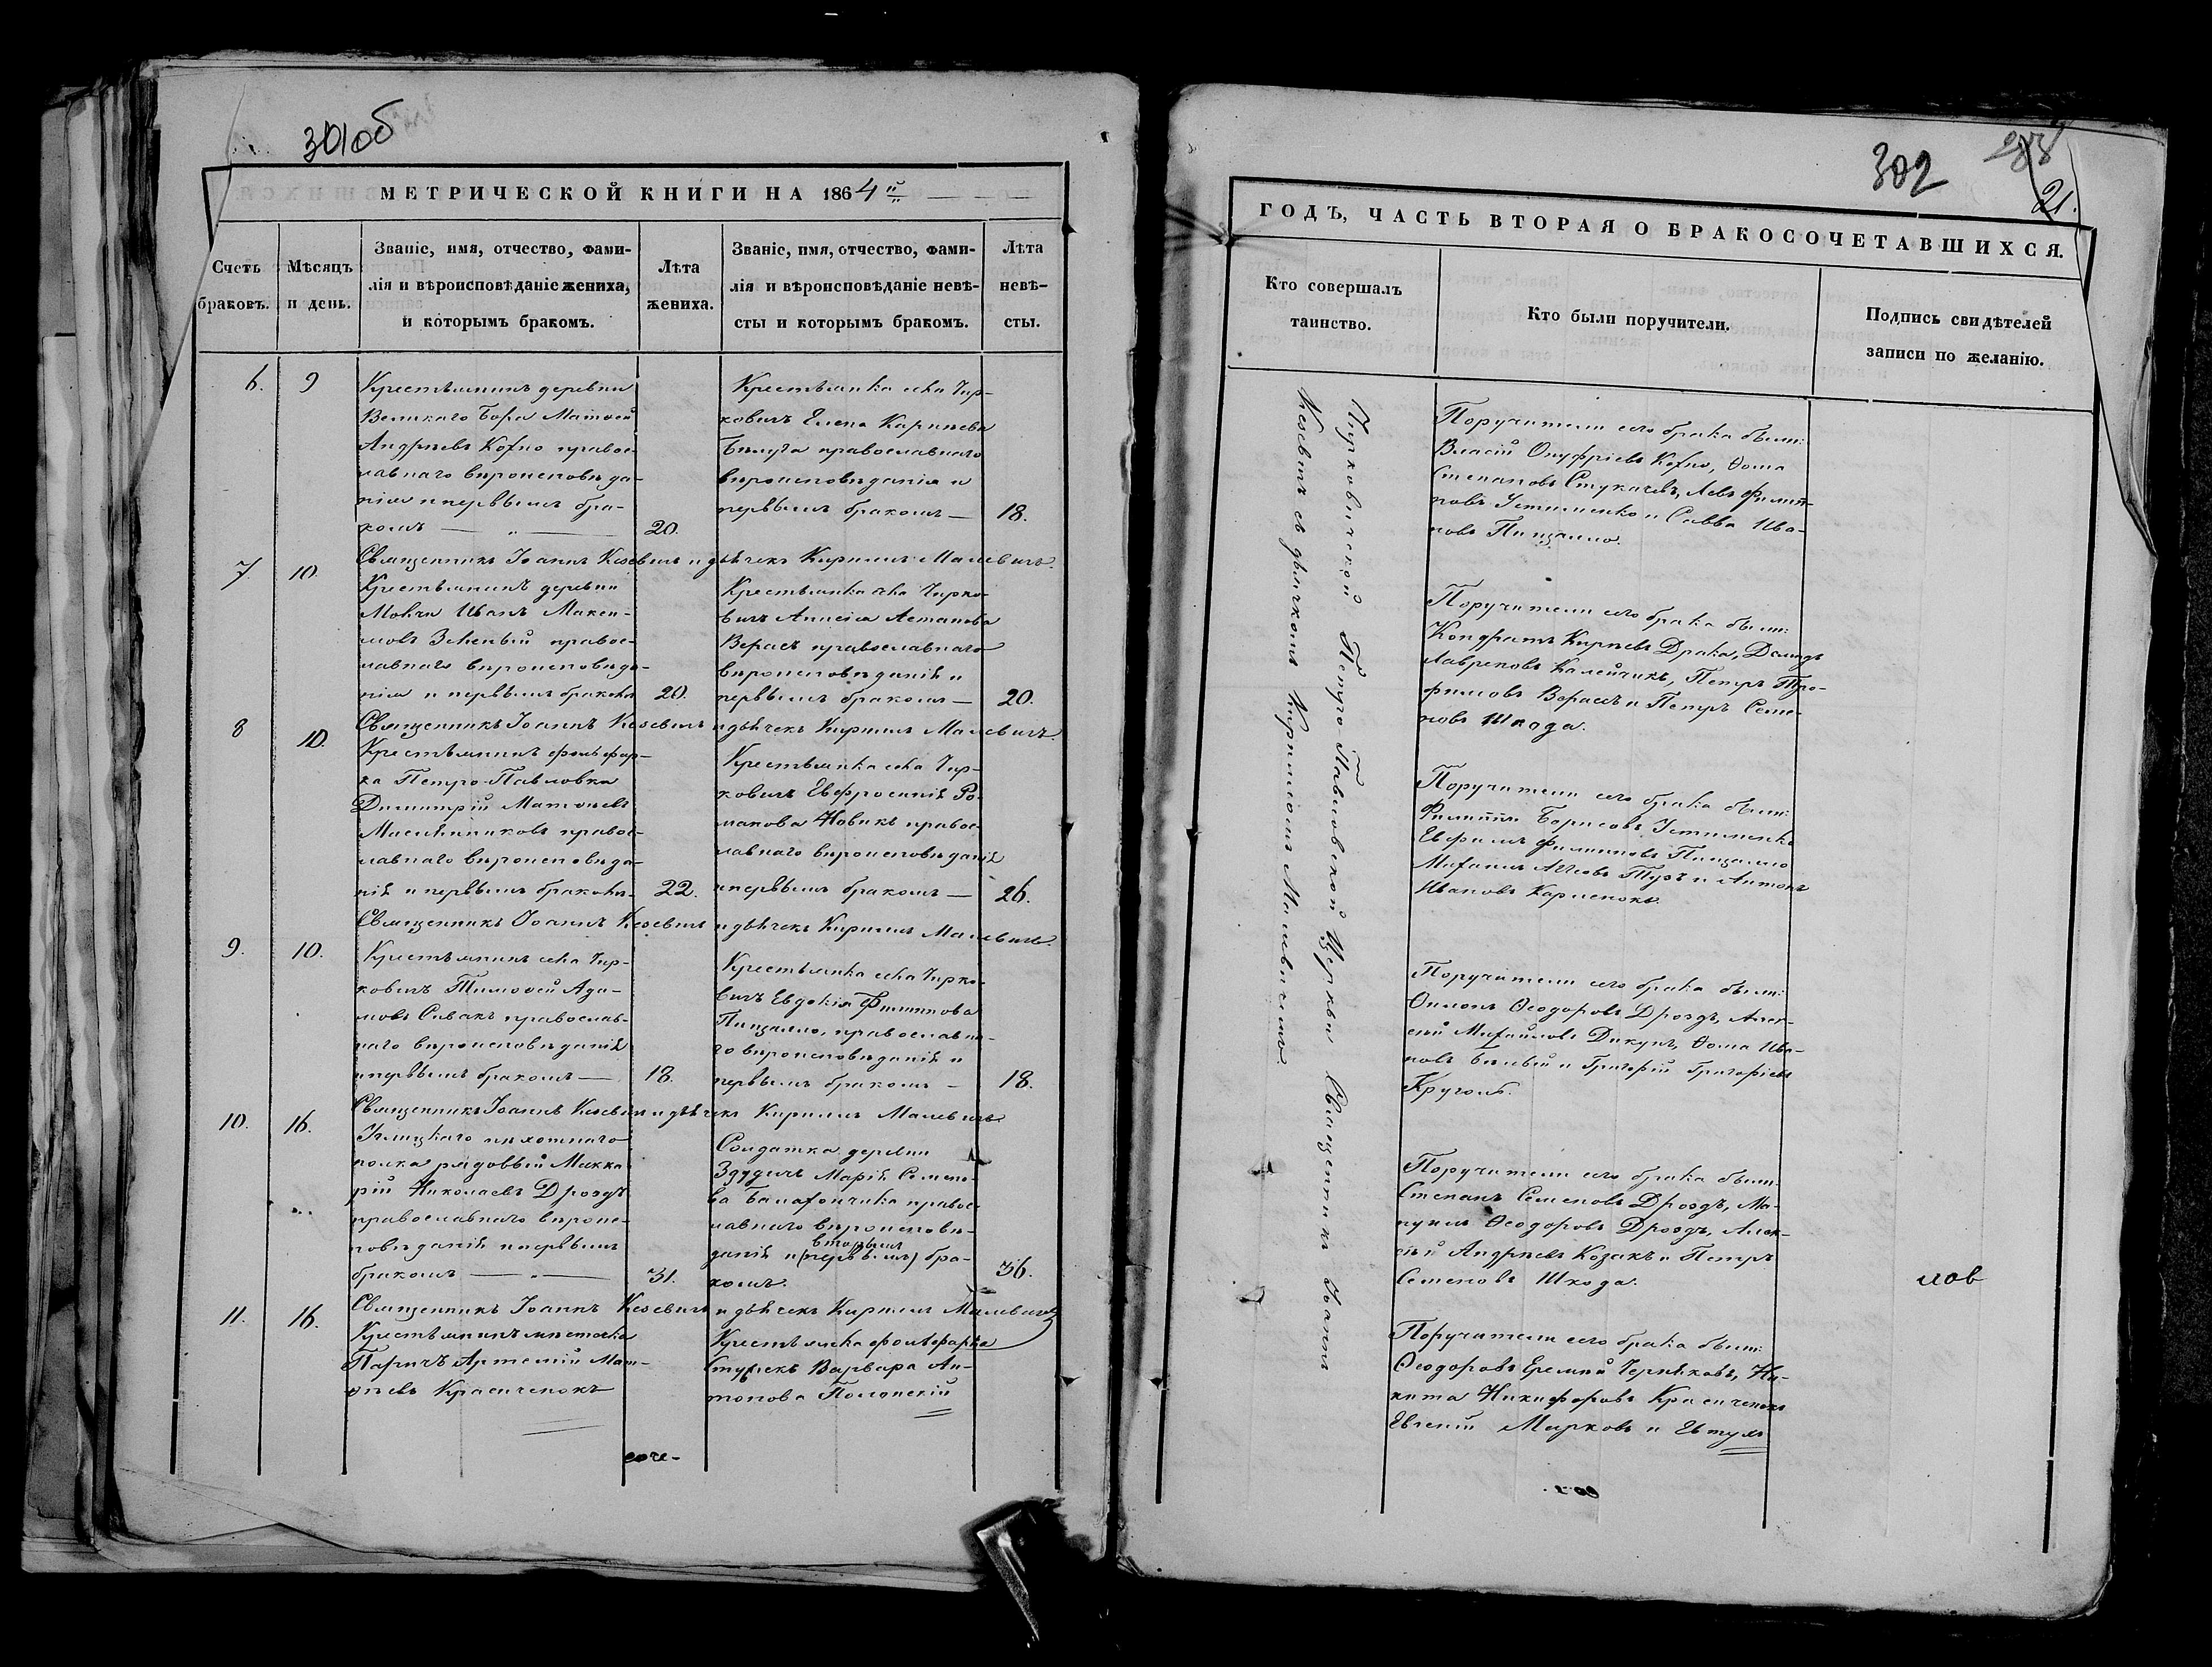 301об
МЕТРИЧЕСКОЙ КНИГИ НА 1864й
Счетъ браковъ.
Мѣсяцъ и день.
Званіе, имя, отчество, фами-
лія и вѣроисповѣданіе жениха,
и которымъ бракомъ.
Лѣта жениха.
Званіе, имя, отчество, фами-
лія и вѣроисповѣданіе невѣ-
сты и которымъ бракомъ.
Лѣта невѣ-
сты.
6. 9
Крестьянинъ деревни
Великаго Бора Матѳей
Андреевъ Кохно правос-
лавнаго вѣроисповѣда-
нія и первымъ бра-
комъ
20.
Крестьянка села Чир-
ковичъ Елена Карпѣева
Бѣлуга православнаго
вѣроисповѣданія и
первымъ бракомъ —
18.
Священникъ Іоаннъ Кезевичъ и дьячекъ Кириллъ Малевичъ.
7. 10.
Крестьянинъ деревни
Мольчи Иванъ Макси-
мовъ Зеленый правос-
лавнаго вѣроисповѣда-
нія и первымъ бракомъ
20.
Крестьянка села Чирко-
вичъ Анисія Астапова
Верасъ православнаго
вѣроисповѣданія и
первымъ бракомъ —
20.
Священникъ Іоаннъ Кезевичъ и дьячекъ Кириллъ Малевичъ.
8 10.
Крестьянинъ фольфар-
ка Петро-Павловка
Димитрій Матѳѣевъ
Масленниковъ правос-
лавнаго вѣроисповѣда-
нія и первымъ бракомъ
22.
Крестьянка села Чир-
ковичъ Евфросинія Ро-
манова Новикъ правос-
лавнаго вѣроисповѣданія
и первымъ бракомъ —
26.
Священникъ Іоаннъ Кезевичъ и дьячекъ Кириллъ Малевичъ.
9. 10.
Крестьянинъ села Чир-
ковичъ Тимоѳей Ада-
мовъ Сивакъ православ-
наго вѣроисповѣданія
и первымъ бракомъ —
18.
Крестьянка села Чирко-
вичъ Евдокія Филиппова
Пищалло, православна-
го вѣроисповѣданія и
первымъ бракомъ —
18.
Священникъ Іоаннъ Кезевичъ и дьячекъ Кириллъ Малевичъ.
10. 16.
пѣхотнаго
полка рядовый Мака-
рій Николаевъ Дроздъ
православнаго вѣроис-
повѣданія и первымъ
бракомъ
31.
Солдатка деревни
Здудичъ Марія Семено-
ва Балахончика правос-
лавнаго вѣроисповѣ-
вторымъ
данія и (первымъ) бра-
комъ.
36.
Священникъ Іоаннъ Кезевичъ и дьячекъ Кириллъ Малевичъ
11. 16.
Крестьянинъ мѣстечка
Паричъ Артемій Мат-
ѳѣевъ Красиченокъ
Крестьянка фольфарка
Варвара Ан-
тонова Полонскій
соче-
302
21.
ГОДЪ, ЧАСТЬ ВТОРАЯ О БРАКОСОЧЕТАВШИХСЯ.
Кто совершалъ
таинство.
Кто были поручители.
Подпись свидѣтелей
записи по желанію.
Чирковичской Петро-Павловской Церкви Священникъ Іоаннъ
Кезевичъ съ дьячкомъ Кирилломъ Малевичемъ.
Поручители сего брака были:
Власій Онуфріевъ Кохно, Ѳома
Степановъ Стукачевъ, Левъ Филип-
повъ Устименко и Савва Ива-
новъ Пищалло.
Поручители сего брака были:
Кондратъ Кирѣевъ Драка, Демидъ
Лавреновъ Калейчикъ, Петръ Тро-
фимовъ Верасъ и Петръ Семе-
новъ Шкода.
Поручители сего брака были:
Филиппъ Борисовъ Устименко
Евфимъ Филиповъ Пищалло
Михаилъ Туръ и Антонъ
Ивановъ Карпенокъ.
Поручители сего брака были:
Филонъ Ѳеодоровъ Дроздъ, Алек-
сѣй Михайловъ Дикунъ, Ѳома Ива-
новъ Бѣлый и Григорій Григорьевъ
Круголь.
Поручители сего брака были:
Степанъ Семеновъ Дроздъ, Ма-
нуилъ Ѳеодоровъ Дроздъ, Алек-
сѣй Андреевъ Козакъ и Петръ
Семеновъ Шкода.
лов
Поручители сего брака были:
Ѳеодоровъ Еремий Черняковъ, Ни-
кита Никифоровъ Красиченокъ
Евгеній Марковъ и Евтухъ